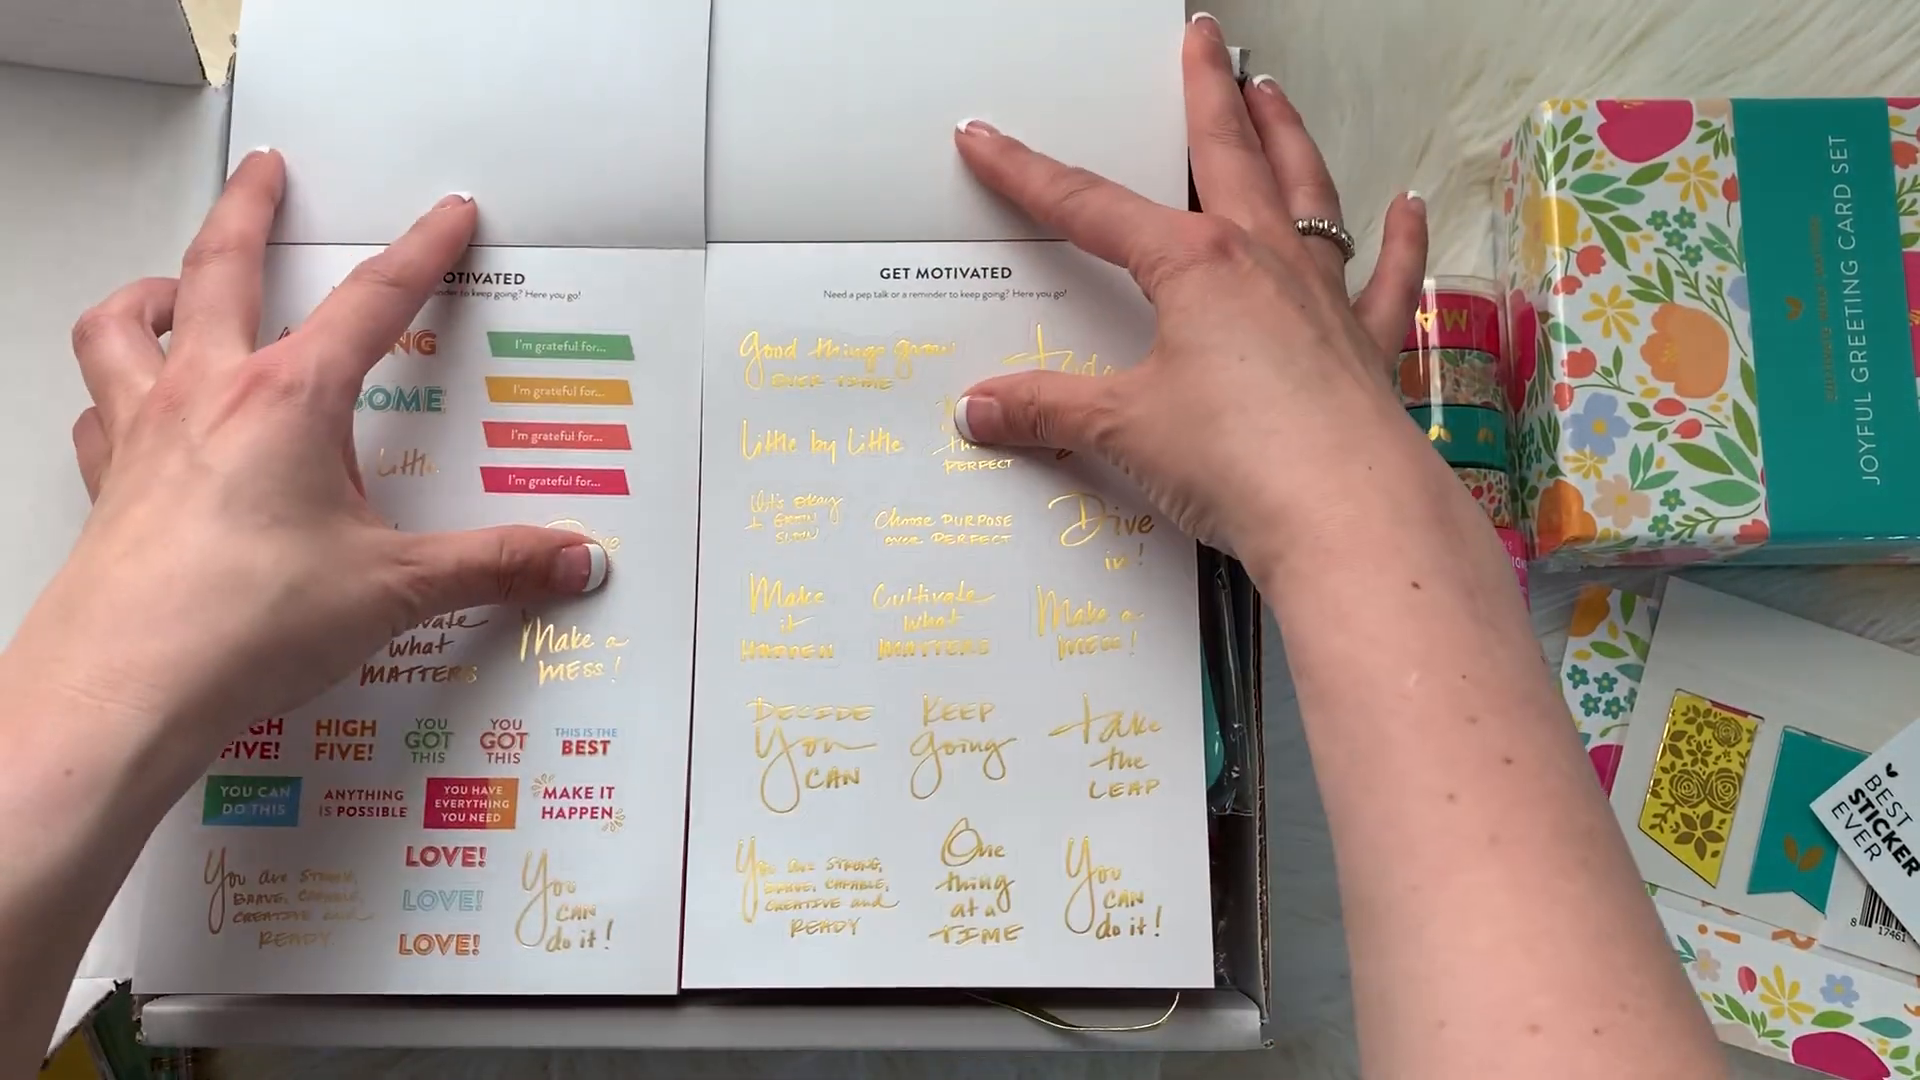 OTIVATED
nder to keep going? Here you go!
NG
I'm grateful for...
SOME
I'm grateful for...
I'm grateful for...
Little
I'm grateful for...
what
MATTERS
Make a
MESS!
HIGH
FIVE!
HIGH
FIVE!
YOU
GOT
THIS
YOU
GOT
THIS
THIS IS THE
BEST
YOU CAN
DO THIS
ANYTHING
IS POSSIBLE
YOU HAVE
EVERYTHING
YOU NEED
MAKE IT
HAPPEN
You are STRONG,
BRAVE, CAPABLE,
CREATIVE and
READY
LOVE!
LOVE!
LOVE!
You
CAN
do it!
GET MOTIVATED
Need a pep talk or a reminder to keep going? Here you go!
Good things grow
OVER TIME
Little by Little
PERFECT
It's okay
to GROW
SLOW
Choose PURPOSE
over PERFECT
Dive
in!
Make
it
HAPPEN
Cultivate
what
MATTERS
Make a
MESS!
DECIDE
You
CAN
KEEP
going
take
the
LEAP
You are STRONG,
BRAVE, CAPABLE,
CREATIVE and
READY
One
thing
at a
TIME
You
CAN
do it!
MA
JOYFUL GREETING CARD SET
BEST
STICKER
EVER
8 17461